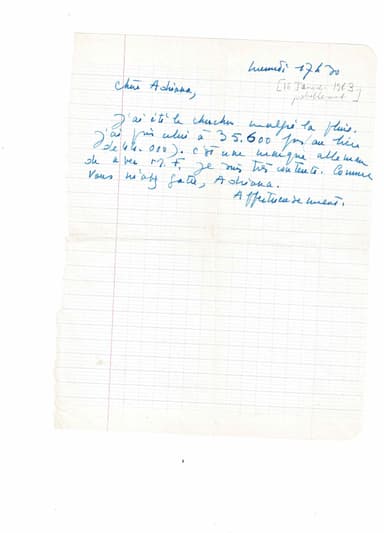 mercredi 17h30
[16 Janvier 1963
probablement]
Chère Adriana,
J'ai été le chercher malgré la pluie.
J'ai pris celui à 35.600 frs (au lieu
de 44.000). C'est une marque alleman
de avec M.F. Je suis très contente. Comme
vous m'avez gâtée, Adriana.
Affectueusement.